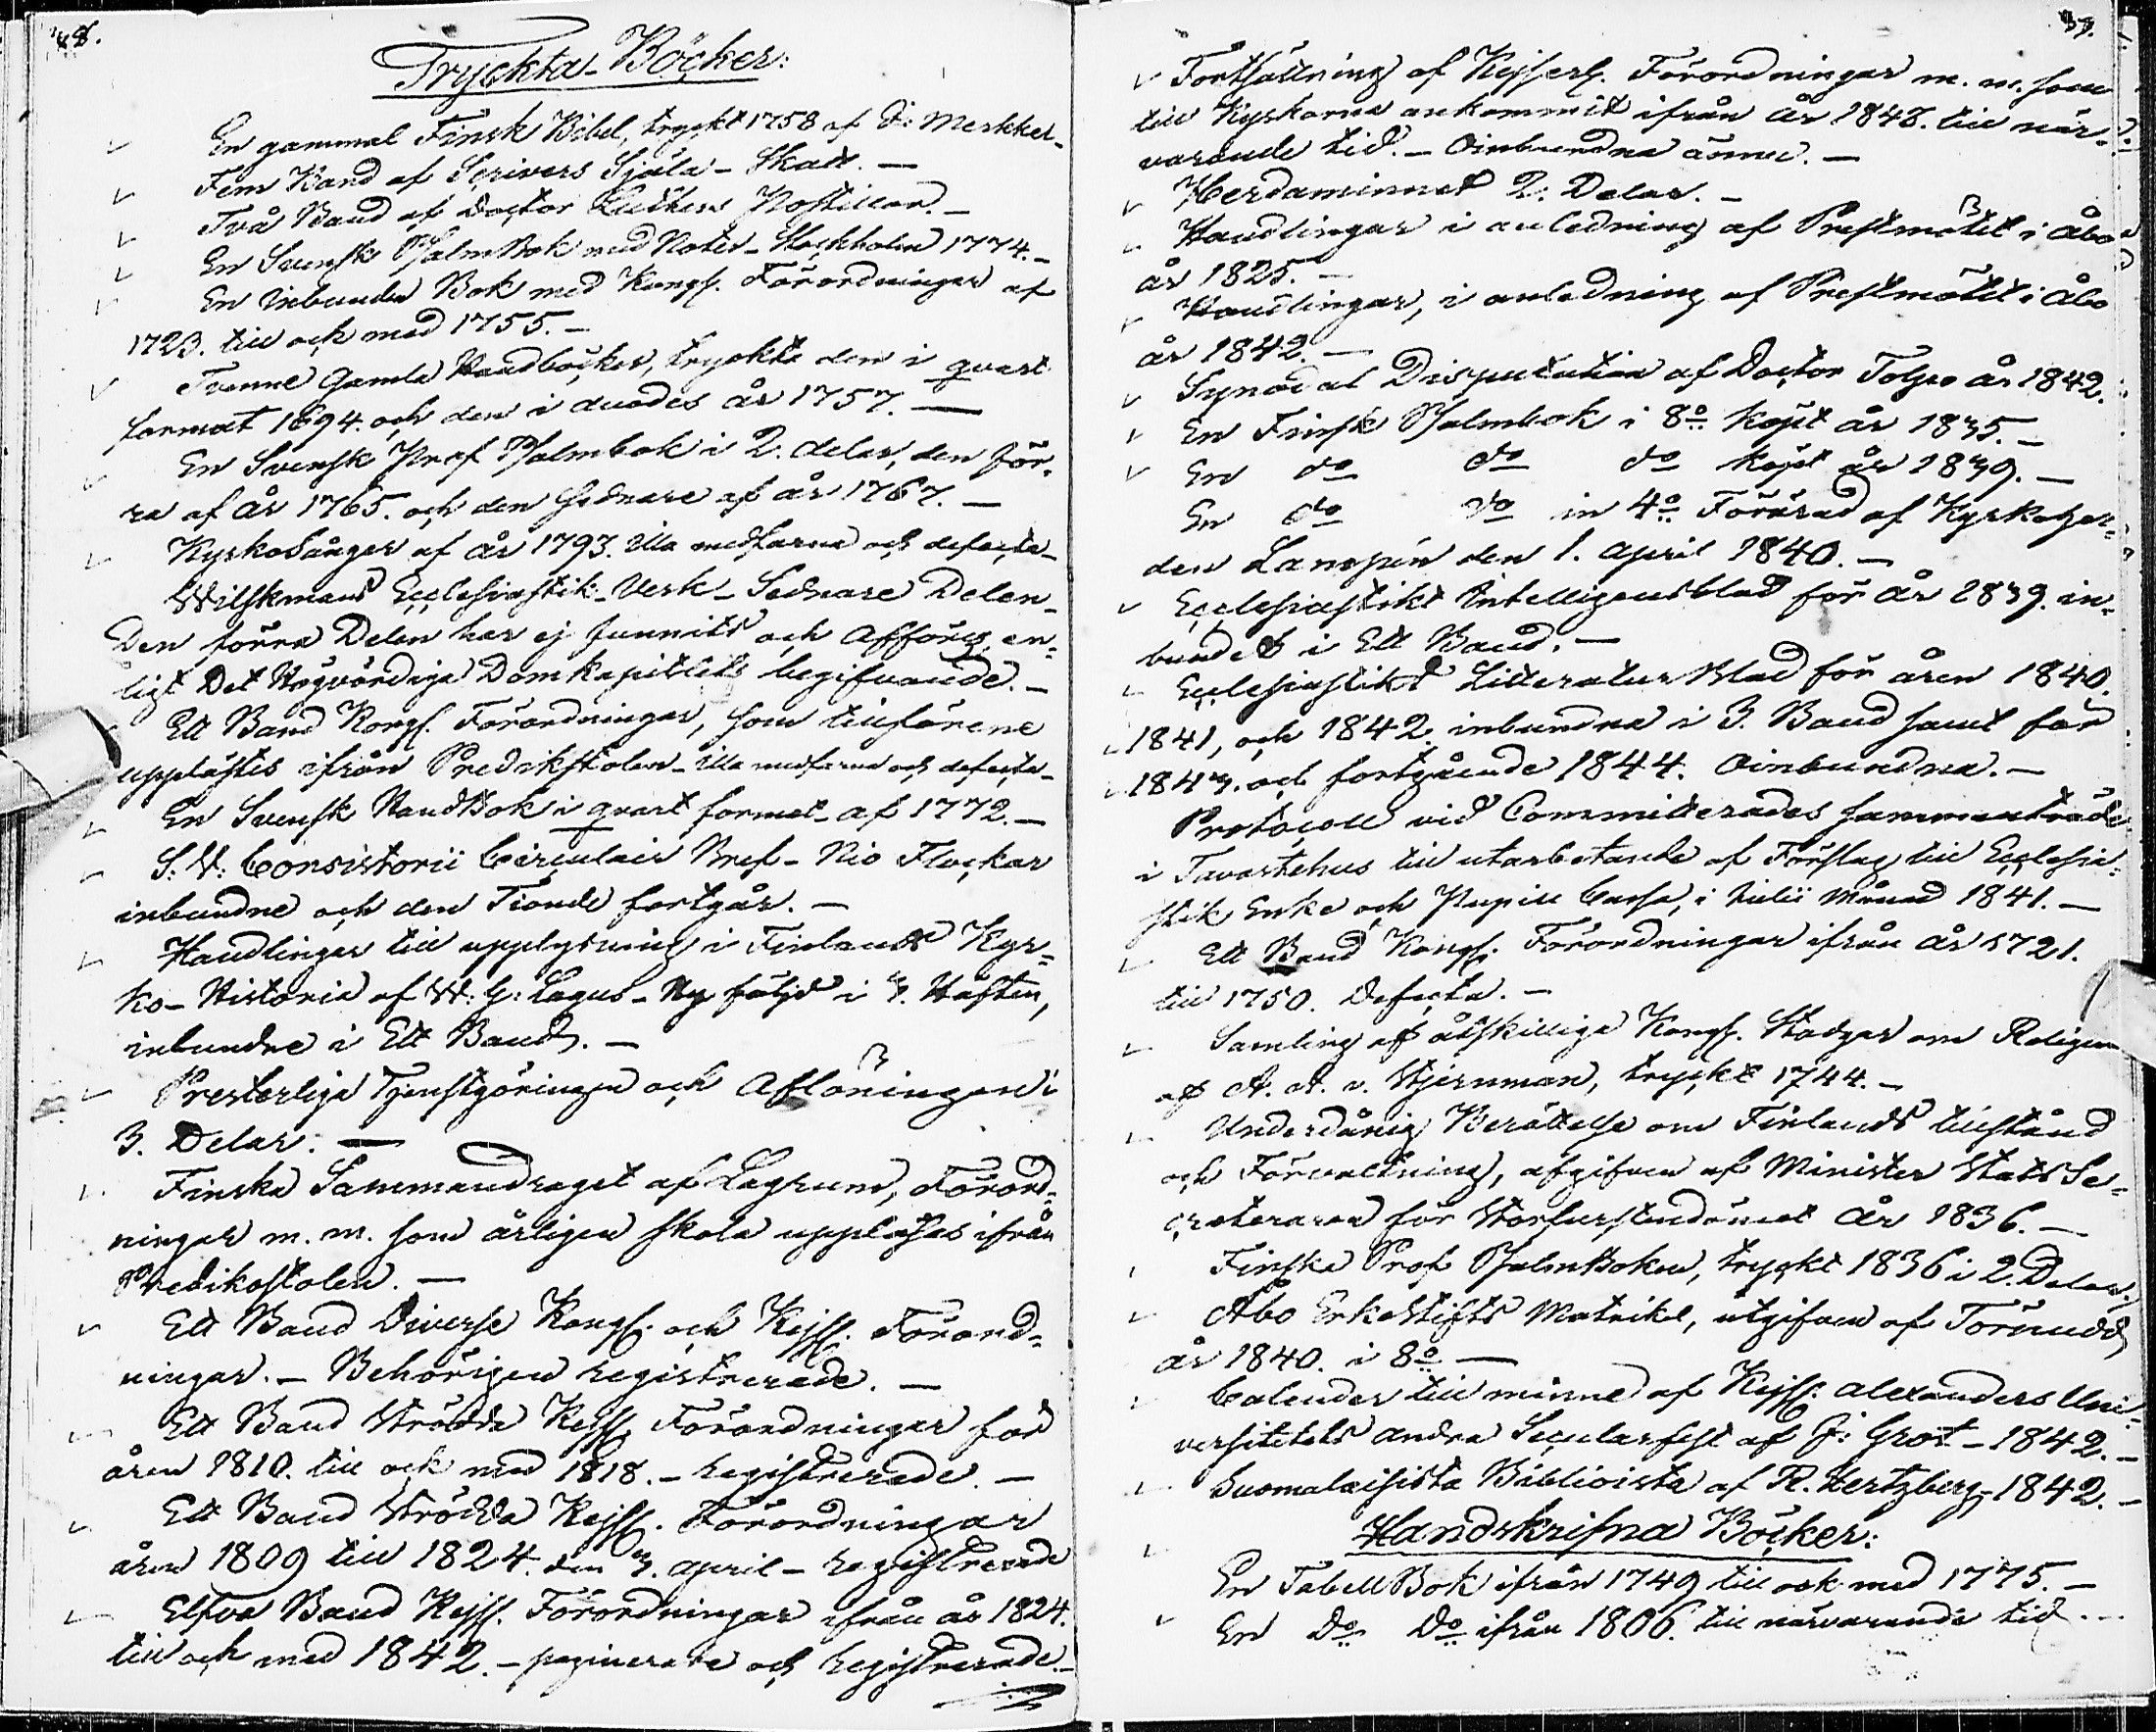 Tryckta Böcker:
En gammal Finsk Bibel, tryckt 1758 af J: Merckel.
Fem Band af Scrivers Själa-Skatt. —
Två Band af Doctor Luthers Postillor. —
En Svensk PsalmBok med Noter - Stockholm 1774. —
En Inbunden Bok med Kongl. Förordningar af
1723. till och med 1755. —
Tvenne Gamla Handböcker, tryckte den i qvart
format 1694. och den i duodes år 1757. —
En Svensk Prof Psalmbok i 2. delar, den för-
ra af år 1765. och den sednare af år 1767. —
KyrkoSånger af år 1793. illa medfarne och defecta —
Wilskmans Ecclesiastik-Verk - Sednare Delen -
Den förra Delen har ej funnits och afföres, en-
ligt Det Högvördiga Domkapitlets begifvande. —
Ett Band Kongl. Förordningar, som tillförene
upplästes ifrån Predikstolen - illa medfarne och defecta -
En Svensk HandBok i qvart format - af 1772. —
S: V: Consistorii Circulair Bref - Nio Flockar
inbundne och den Tionde fortgår. —
Handlingar till upplysning i Finlands Kyr-
ko-Historia af W: G: Lagus - Ny följd i 3. Häften,
inbundne i Ett Band. —
Presterliga Tjenstgöringen och Aflöningen i
3. Delar. —
Finska Sammandraget af Lagrum, Förord-
ningar m. m. som årligen skola uppläsas ifrån
Predikostolen. —
Ett Band Diverse Kongl. och Kejsl. Förord-
ningar. — Behörigen registrerade. —
Ett Band Strödda Kejsl. Förordningar för
åren 1810. till och med 1818. — registrerade. —
Ett Band Strödda Kejsl. Förordningar
åren 1809 till 1824. den 3. April — registrerade
Elfva Band Kejsl. Förordningar ifrån år 1824.
till och med 1842. — paginerade och registrerade. —
37.
Fortsättning af Kejserl. Förordningar m. m. som
till Kyrkorna ankommit ifrån år 1843. till när-
varande tid. — Oinbundna ännu. —
Herdaminnet 2. Delar. —
Handlingar i anledning af Prestmötet i Åbo
år 1825. —
Handlingar, i anledning af Prestmötet i Åbo
år 1842. —
Synodal Disputation af Doctor Tolpo år 1842.
En Finsk Psalmbok i 8o köpt år 1835. —
En do do do köpt år 1839. —
En do do in 4o Förärad af Kyrkoher-
den Lampén den 1. April 1840. —
Ecclesiastikt Intelligensblad för år 1839. in-
bundet i Ett Band. —
Ecclesiastikt LitteraturBlad för åren 1840.
1841, och 1842 inbundna i 3. Band samt för
1843. och fortgående 1844. Oinbundna. —
Protocoll vid Committerades sammanträde
i Tavastehus till utarbetande af Förslag till Ecclesia-
stik Enke och Pupill Cassa, i Julii Månad 1841. —
Ett Band Kongl. Förordningar ifrån år 1721.
till 1750. Defecta. —
Samling af åtskilliga Kongl. Stadgar om Religion
af A. A. v. Stjernman, tryckt 1744. —
Underdånig Berättelse om Finlands tillstånd
och Förvaltning, afgifven af Minister StatsSe-
creteraren för Storfurstendömet År 1836. —
Finska Prof PsalmBoken, tryckt 1836 i 2. Delar.
Åbo ErkeStifts Matrikel, utgifven af Törnudd
år 1840. i 8o —
Calender till minne af Kejsl. Alexanders Uni-
versitetets andra Secularfest af J: Grot — 1842. —
Suomalaisista Biblioista af R. Hertzberg, 1842. —
Handskrifna Böcker:
En TabellBok ifrån 1749 till och med 1775. —
En Do Do ifrån 1806. till närvarande tid. —